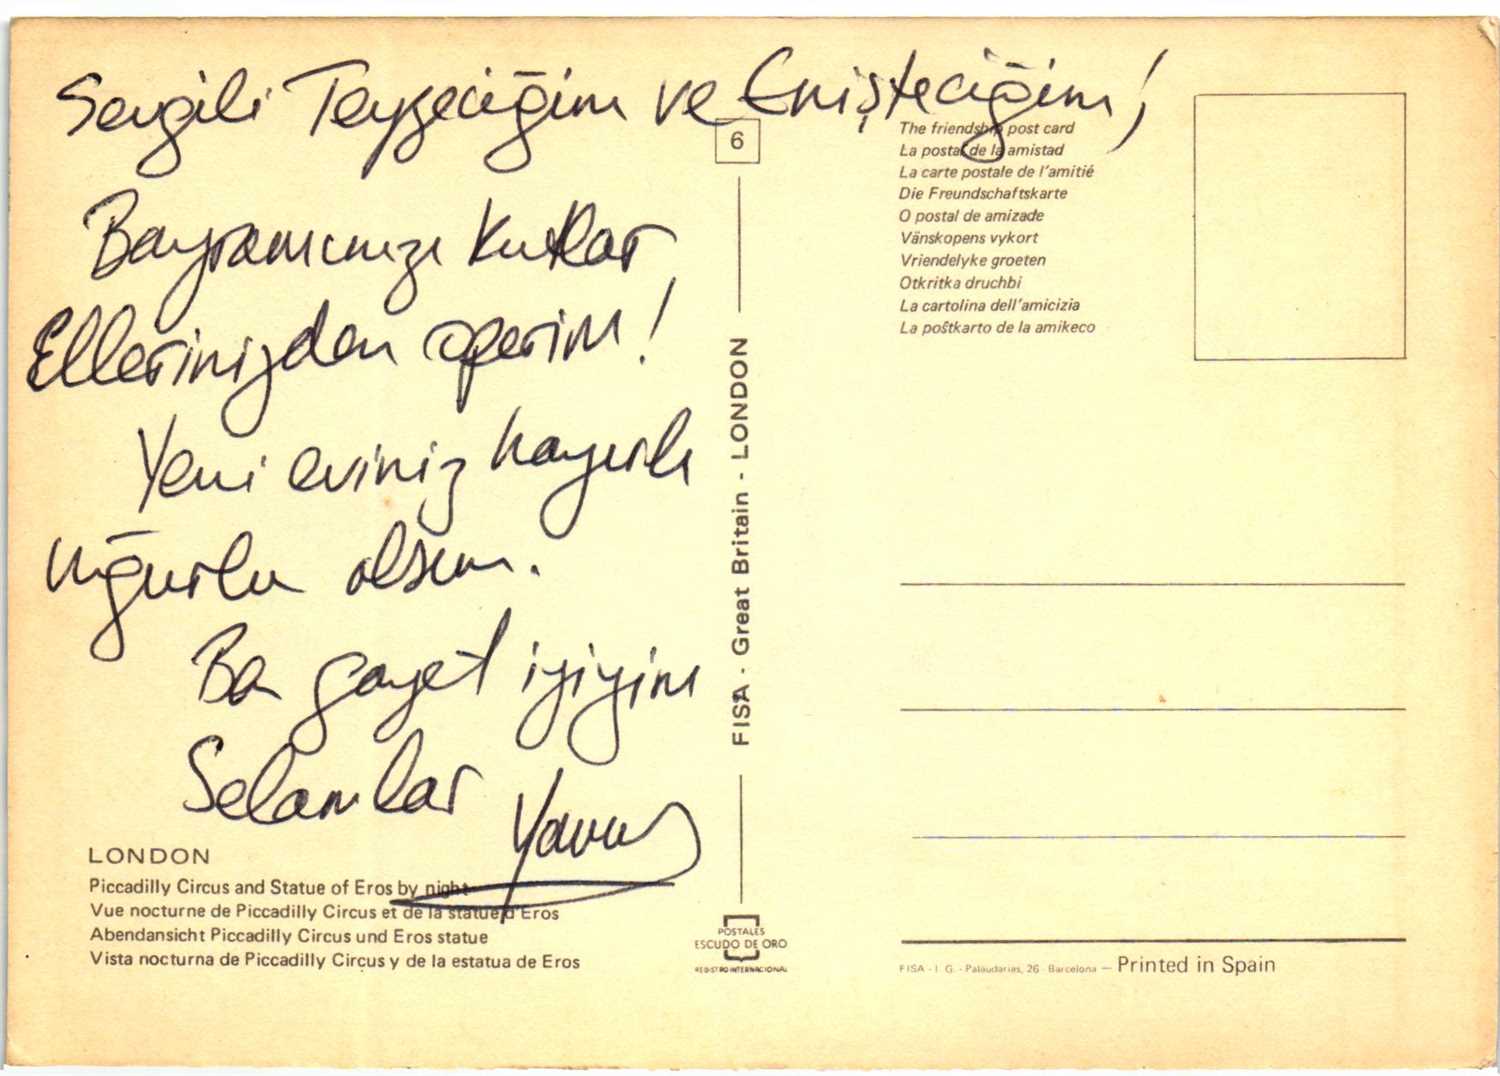 Sevgili Teyzeciğim ve Enişteciğim!
Bayramınızı kutlar
Ellerinizden öperim!
Yeni eviniz hayırlı
uğurlu olsun.
Ba gayet iyiyim
Selamlar
Yavuz
LONDON
Piccadilly Circus and Statue of Eros by night
Vue nocturne de Piccadilly Circus et de la statue d'Eros
Abendansicht Piccadilly Circus und Eros statue
Vista nocturna de Piccadilly Circus y de la estatua de Eros
6
FISA - Great Britain - LONDON
POSTALES
ESCUDO DE ORO
REGISTRO INTERNACIONAL
The friendship post card
La postal de la amistad
La carte postale de l'amitié
Die Freundschaftskarte
O postal de amizade
Vänskopens vykort
Vriendelyke groeten
Otkritka druchbi
La cartolina dell'amicizia
La poŝtkarto de la amikeco
FISA - I. G. - Palaudarias, 26 - Barcelona — Printed in Spain